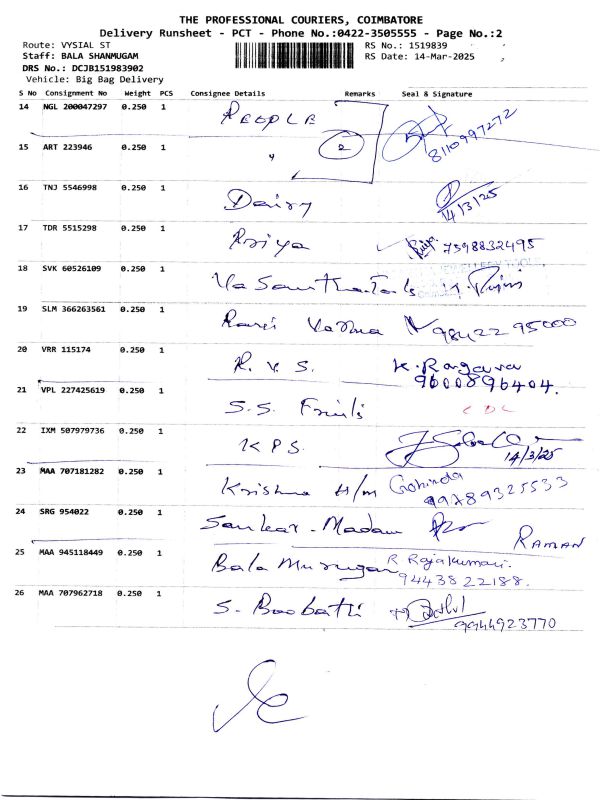 THE PROFESSIONAL COURIERS, COIMBATORE
Delivery Runsheet - PCT - Phone No.:0422-3505555 - Page No.:2
Route: VYSIAL ST
RS No.: 1519839
Staff: BALA SHANMUGAM
RS Date: 14-Mar-2025
DRS No.: DCJB151983902
Vehicle: Big Bag Delivery
S No Consignment No Weight PCS Consignee Details Remarks Seal & Signature
14 NGL 200047297 0.250 1 PEOPLE 8110997272
15 ART 223946 0.250 1 " 2
16 TNJ 5546998 0.250 1 Dairy 14/3/25
17 TDR 5515298 0.250 1 Priya Priya 7598832495
18 SVK 60526109 0.250 1 Vasantha Tools
19 SLM 366263561 0.250 1 Ravi Varma 9842295000
20 VRR 115174 0.250 1 R.V.S. K. Ragava
9600896404.
21 VPL 227425619 0.250 1 S.S. Fruits CDC
22 IXM 507979736 0.250 1 KPS. 14/3/25
23 MAA 707181282 0.250 1 Krishna H/m Gohinda
9789325533
24 SRG 954022 0.250 1 Sankar - Madam RAMAN
25 MAA 945118449 0.250 1 Bala Murugan R Rajakumari.
9443822188.
26 MAA 707962718 0.250 1 S. Boobathi
9944923770